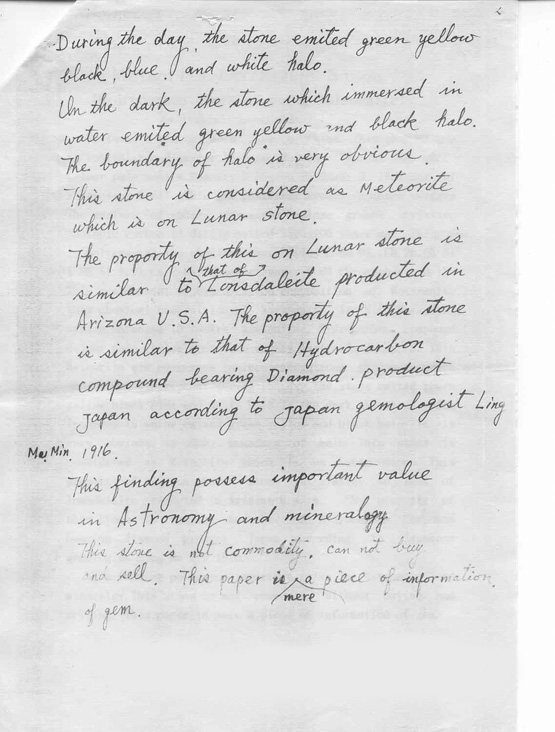 During the day, the stone emited green yellow
black, blue, and white halo.
In the dark, the stone which immersed in
water emited green yellow and black halo.
The boundary of halo is very obvious.
This stone is considered as Meteorite
which is on Lunar stone.
The property of this on Lunar stone is
that of
similar to Lonsdaleite producted in
Arizona U.S.A. The property of this stone
is similar to that of Hydrocarbon
compound bearing Diamond. product
Japan according to Japan gemologist Ling
Min. 1916.
This finding possess important value
in Astronomy and mineralogy
This stone is not commodity, can not buy
and sell. This paper is a piece of information
mere
of gem.